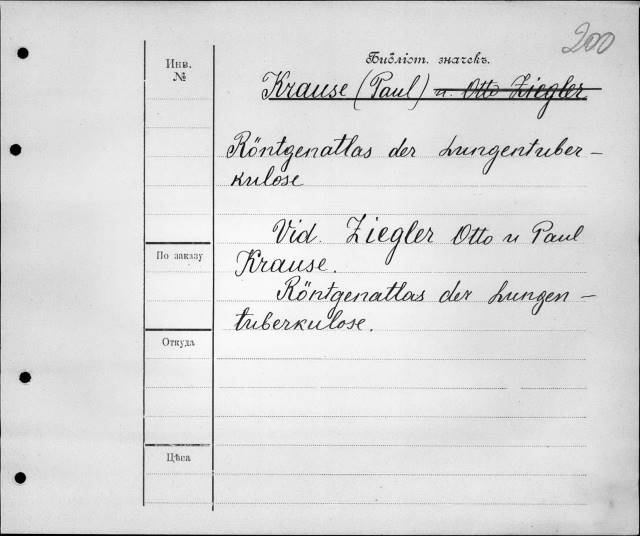 200
Инв.
№
Библіот. значекъ.
Krause (Paul) u. Otto Ziegler
Röntgenatlas der Lungentuber-
kulose
Vid. Ziegler Otto u Paul
Krause.
По заказу
Röntgenatlas der Lungen-
tuberkulose.
Откуда
Цѣна